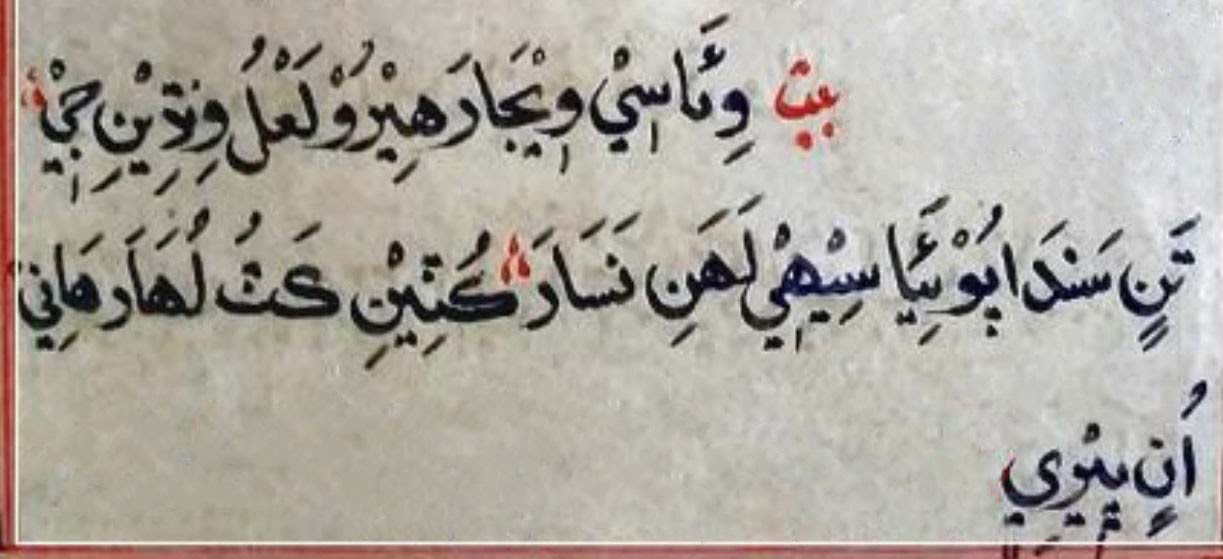 بيت وِئَا سٖيْ وٖيْجَارَ هِيْرُوْ لَعْلُ وِنڌِيْنِ جٖيْ
تَنٍ سَندَا پُوْئِيَّا سِيْهٖيْ لَهَنِ نَسَارَ كُتِيْنِ كَتُ لُهَارَ هَاني
اُنٍ